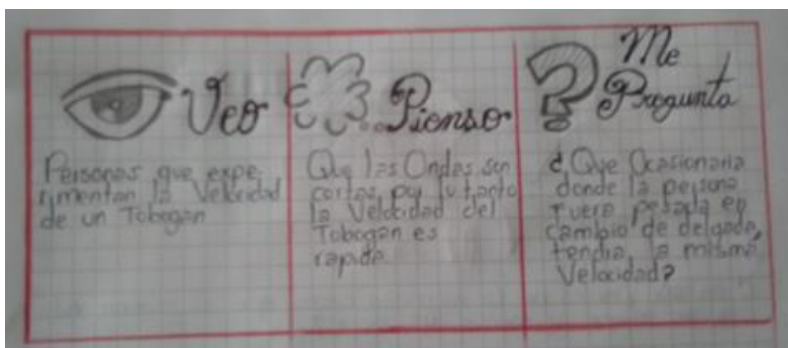 Veo
Personas que expe-
rimentan la Velocidad
de un Tobogan
Pienso
Que las Ondas son
cortas, por lo tanto
la Velocidad del
Tobogan es
rapida
Me
Pregunto
¿Que Ocasionaria
donde la persona
fuera pesada en
cambio de delgada,
tendria la misma
Velocidad?